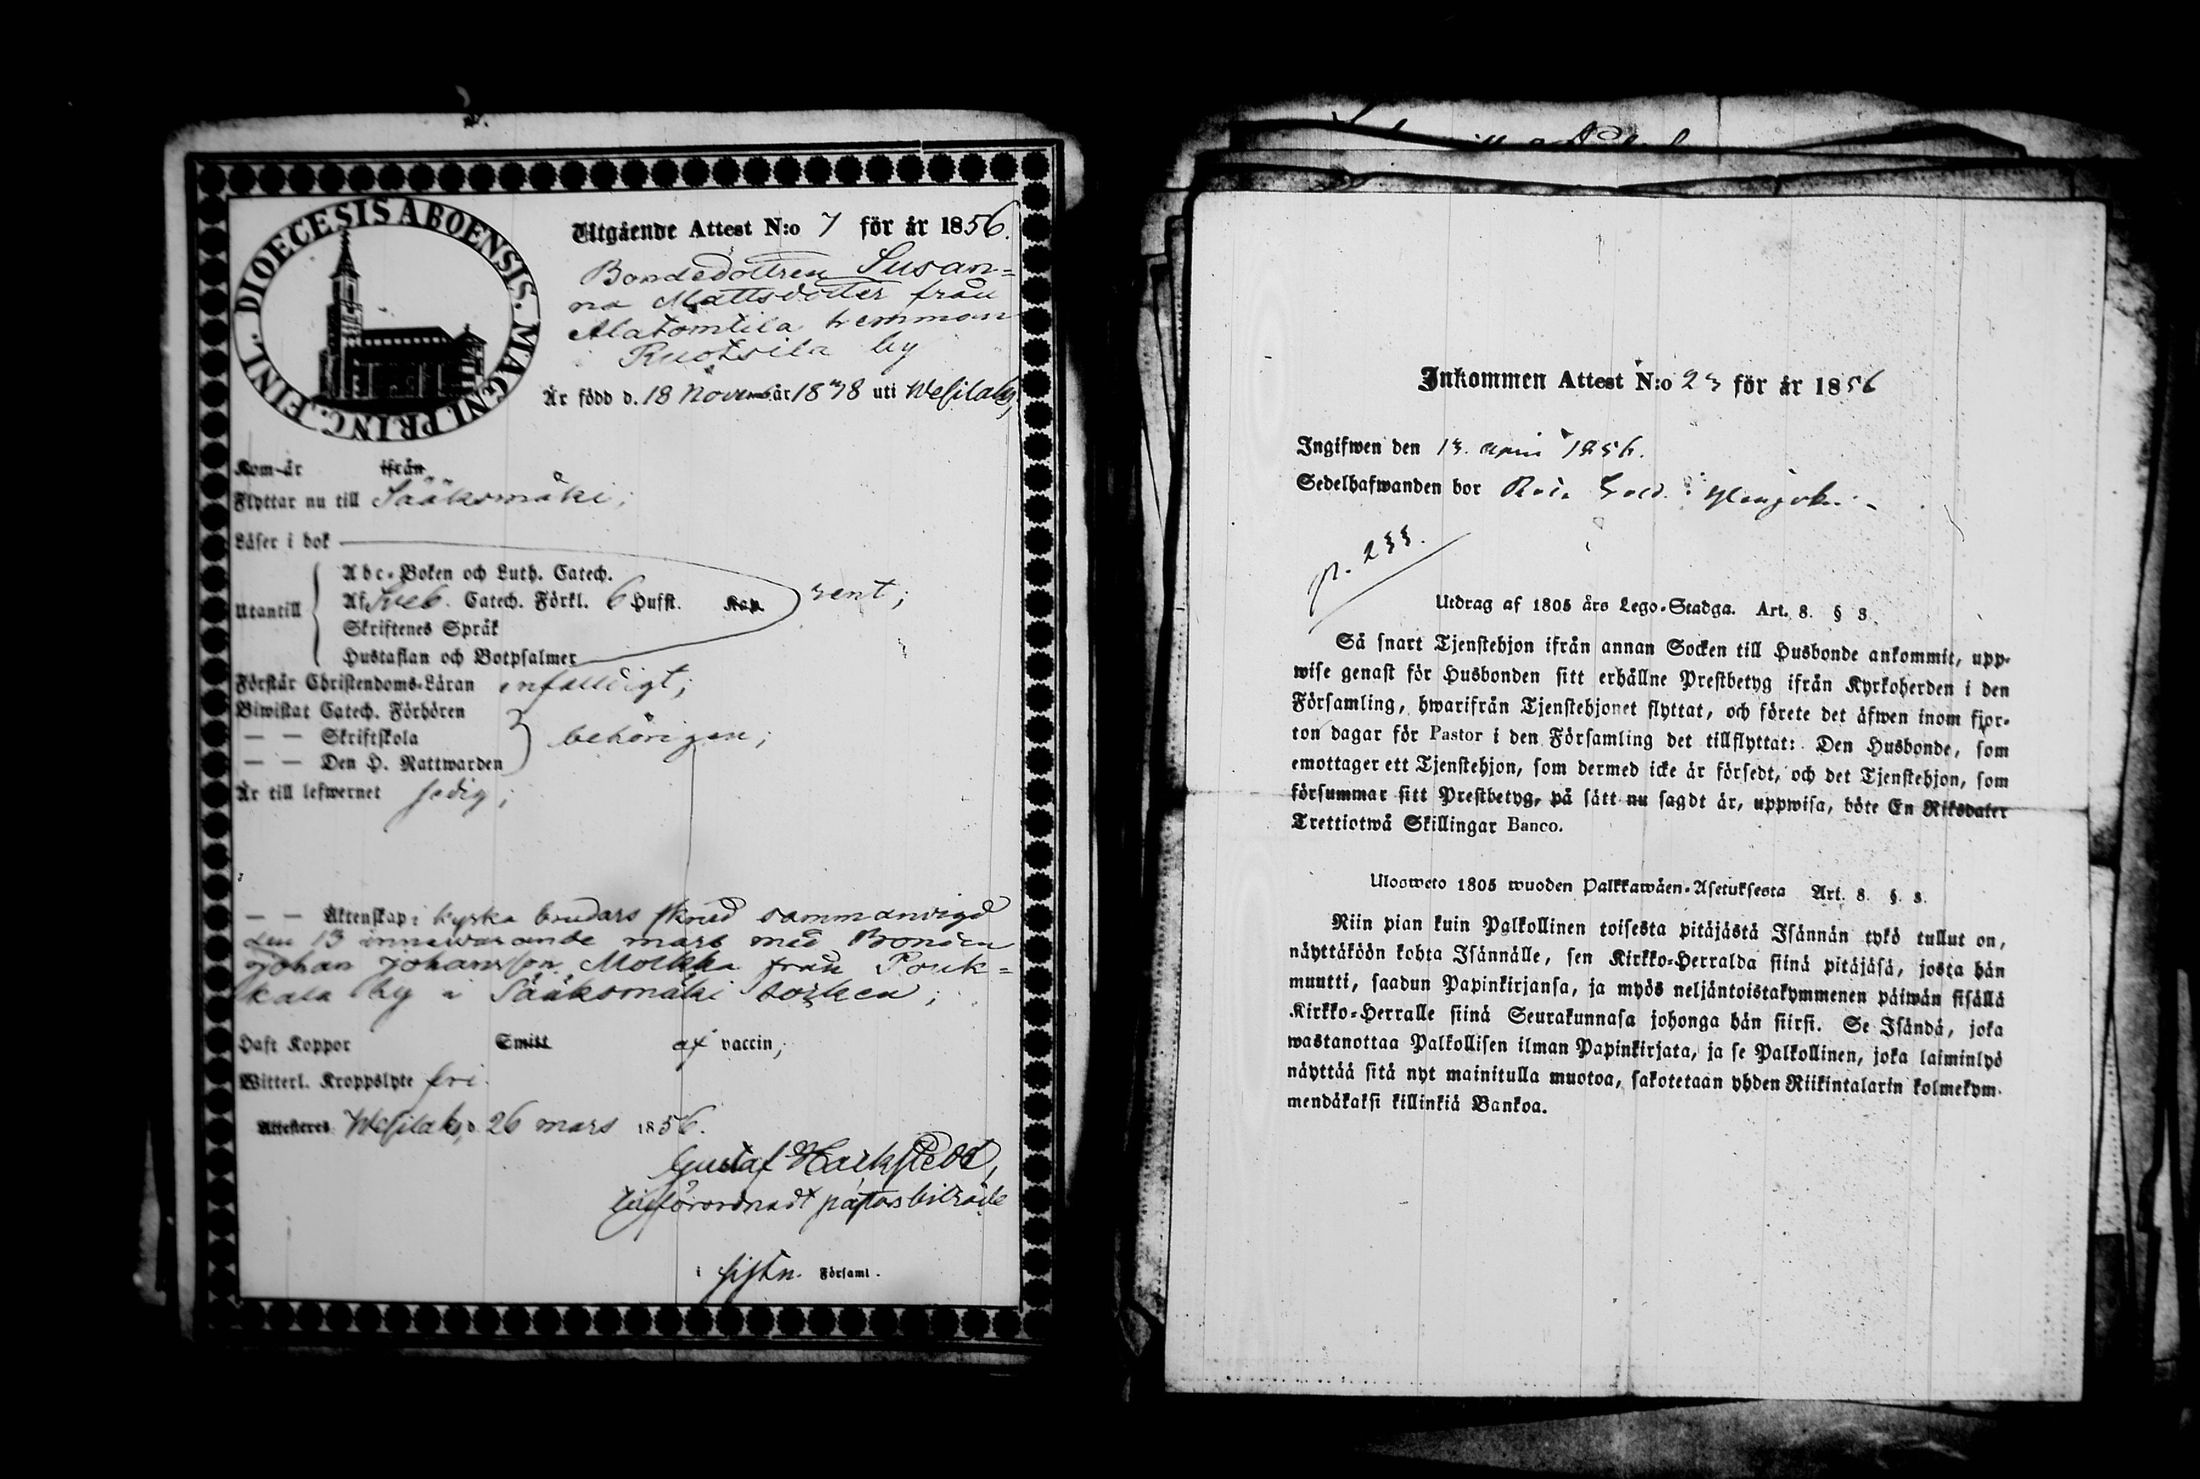 DIOECESIS ABOENSIS. MAGNI. PRINC. FINL.
Utgående Attest N:o 7 för år 1856.
Bondedottren Susan=
na Mattsdotter från
Alatomtila hemman
i Ruotsila by
Är född d. 18 Novemb. år 1838 uti Wesilaks,
Kom-är ifrån
Flyttar nu till Sääksmäki;
Läser i bok
Utantill
Abc-Boken och Luth. Catech.
Af Sveb. Catech. Förkl. 6 Hufst. Kap. rent;
Skriftenes Språk
Hustaflan och Botpsalmer
Förstår Christendoms-Läran enfalldigt;
Biwistat Catech. Förhören
— — Skriftskola behörigen;
— — Den H. Nattwarden
Är till lefwernet sedig;
— — Äktenskap: i kyrka brudars skrud sammanvigd
den 13 innewarande mars med Bonden
Johan Johansson Molkka från Rouk=
kala by i Sääksmäki socken;
Haft Koppor Smitt af vaccin;
Witterl. Kroppslyte fri.
Attesteres Wesilaks, d. 26 mars 1856.
Gustaf
tillförordnadt pastorsbiträde
i Församl.
Inkommen Attest N:o 23 för år 1856
Ingifwen den 13. April 1856.
Sedelhafwanden bor
p. 233.
Utdrag af 1805 års Lego-Stadga. Art. 8. § 3.
Så snart Tjenstehjon ifrån annan Socken till Husbonde ankommit, upp-
wise genast för Husbonden sitt erhållne Prestbetyg ifrån Kyrkoherden i den
Församling, hwarifrån Tjenstehjonet flyttat, och förete det äfwen inom fjor-
ton dagar för Pastor i den Församling det tillflyttat: Den Husbonde, som
emottager ett Tjenstehjon, som dermed icke är försedt, och det Tjenstehjon, som
försummar sitt Prestbetyg, på sätt nu sagdt är, uppwisa, böte En Riksdaler
Trettiotwå Skillingar Banco.
Uloosweto 1805 wuoden Palkkawäen-Asetuksesta Art. 8. §. 3.
Niin pian kuin Palkollinen toisesta pitäjästä Isännän tykö tullut on,
näyttäköön kohta Isännälle, sen Kirkko-Herralda siinä pitäjäsä, josta hän
muutti, saadun Papinkirjansa, ja myös neljäntoistakymmenen päiwän sisällä
Kirkko-Herralle siinä Seurakunnasa johonga hän siirsi. Se Isändä, joka
wastanottaa Palkollisen ilman Papinkirjata, ja se Palkollinen, joka laiminlyö
näyttää sitä nyt mainitulla muotoa, sakotetaan yhden Riikintalarin kolmekym-
mendäkaksi killinkiä Bankoa.